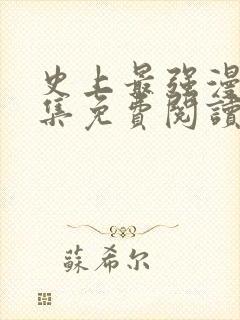 史上最强漫
集免費閱讀
蘇希尔